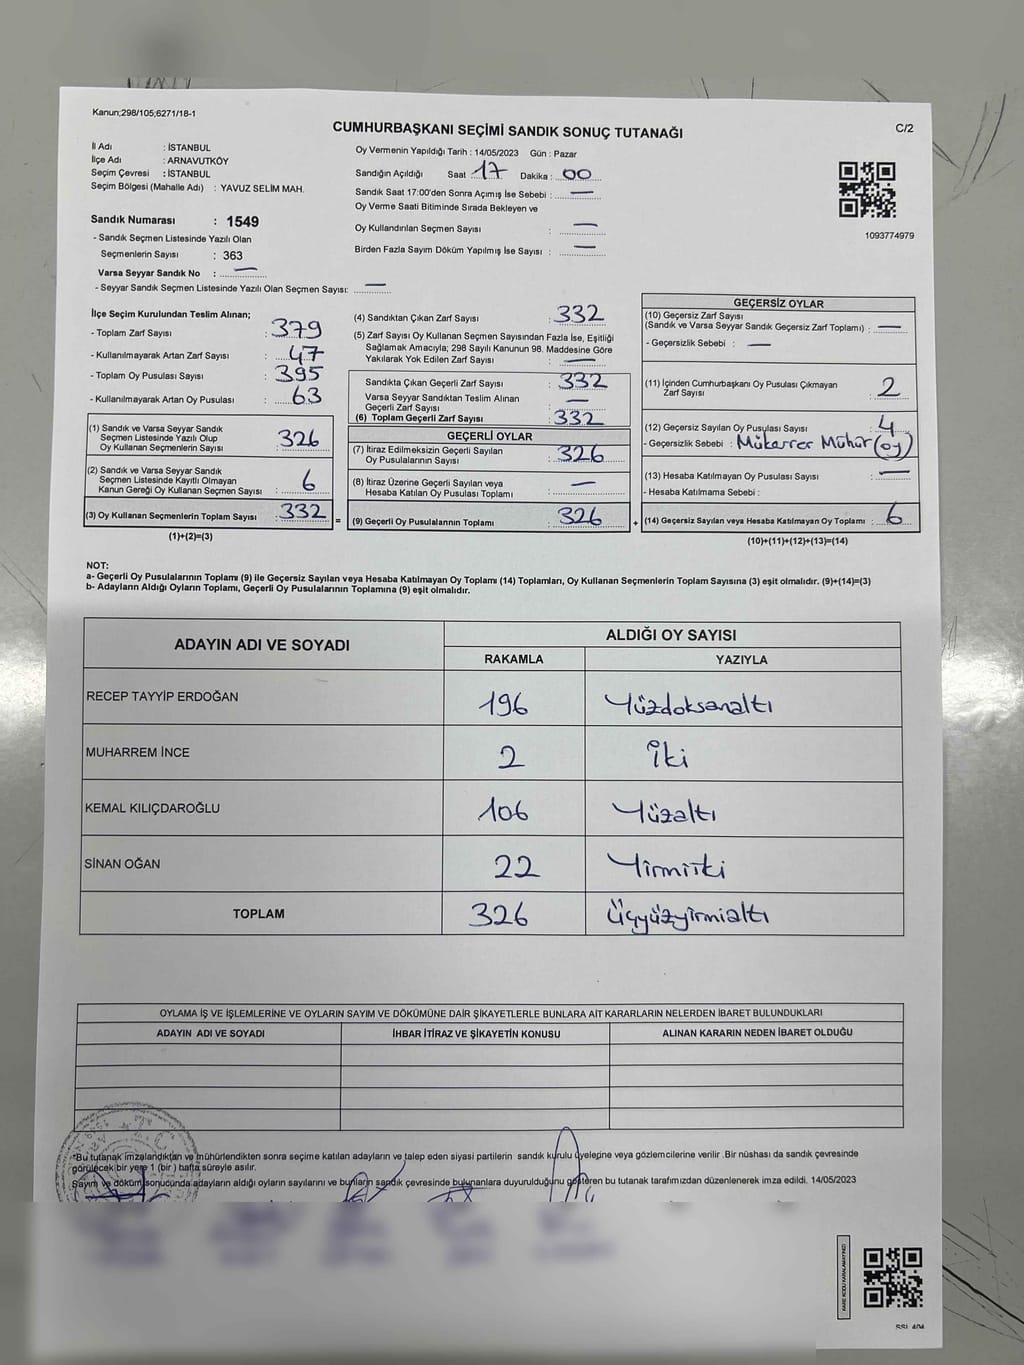 Kanun;298/105;6271/18-1
C/2
CUMHURBAŞKANI SEÇİMİ SANDIK SONUÇ TUTANAĞI
İl Adı : İSTANBUL
İlçe Adı : ARNAVUTKÖY
Seçim Çevresi : İSTANBUL
Seçim Bölgesi (Mahalle Adı) : YAVUZ SELİM MAH.
Sandık Numarası : 1549
- Sandık Seçmen Listesinde Yazılı Olan
Seçmenlerin Sayısı : 363
Varsa Seyyar Sandık No : —
- Seyyar Sandık Seçmen Listesinde Yazılı Olan Seçmen Sayısı: —
Oy Vermenin Yapıldığı Tarih : 14/05/2023 Gün : Pazar
Sandığın Açıldığı Saat 17 Dakika : 00
Sandık Saat 17:00'den Sonra Açımış İse Sebebi : —
Oy Verme Saati Bitiminde Sırada Bekleyen ve
Oy Kullandırılan Seçmen Sayısı : —
Birden Fazla Sayım Döküm Yapılmış İse Sayısı : —
1093774979
İlçe Seçim Kurulundan Teslim Alınan;
- Toplam Zarf Sayısı : 379
- Kullanılmayarak Artan Zarf Sayısı : 47
- Toplam Oy Pusulası Sayısı : 395
- Kullanılmayarak Artan Oy Pusulası : 63
(1) Sandık ve Varsa Seyyar Sandık
Seçmen Listesinde Yazılı Olup
Oy Kullanan Seçmenlerin Sayısı : 326
(2) Sandık ve Varsa Seyyar Sandık
Seçmen Listesinde Kayıtlı Olmayan
Kanun Gereği Oy Kullanan Seçmen Sayısı : 6
(3) Oy Kullanan Seçmenlerin Toplam Sayısı : 332
(1)+(2)=(3)
(4) Sandıktan Çıkan Zarf Sayısı : 332
(5) Zarf Sayısı Oy Kullanan Seçmen Sayısından Fazla İse, Eşitliği
Sağlamak Amacıyla; 298 Sayılı Kanunun 98. Maddesine Göre
Yakılarak Yok Edilen Zarf Sayısı : —
Sandıkta Çıkan Geçerli Zarf Sayısı : 332
Varsa Seyyar Sandıktan Teslim Alınan
Geçerli Zarf Sayısı : —
(6) Toplam Geçerli Zarf Sayısı : 332
GEÇERLİ OYLAR
(7) İtiraz Edilmeksizin Geçerli Sayılan
Oy Pusulalarının Sayısı : 326
(8) İtiraz Üzerine Geçerli Sayılan veya
Hesaba Katılan Oy Pusulası Toplamı : —
= (9) Geçerli Oy Pusulalarının Toplamı : 326
GEÇERSİZ OYLAR
(10) Geçersiz Zarf Sayısı
(Sandık ve Varsa Seyyar Sandık Geçersiz Zarf Toplamı) : —
- Geçersizlik Sebebi : —
(11) İçinden Cumhurbaşkanı Oy Pusulası Çıkmayan
Zarf Sayısı : 2
(12) Geçersiz Sayılan Oy Pusulası Sayısı : 4
- Geçersizlik Sebebi : Mükerrer Mühür (oy)
(13) Hesaba Katılmayan Oy Pusulası Sayısı : —
- Hesaba Katılmama Sebebi :
+ (14) Geçersiz Sayılan veya Hesaba Katılmayan Oy Toplamı : 6
(10)+(11)+(12)+(13)=(14)
NOT:
a- Geçerli Oy Pusulalarının Toplamı (9) ile Geçersiz Sayılan veya Hesaba Katılmayan Oy Toplamı (14) Toplamları, Oy Kullanan Seçmenlerin Toplam Sayısına (3) eşit olmalıdır. (9)+(14)=(3)
b- Adayların Aldığı Oyların Toplamı, Geçerli Oy Pusulalarının Toplamına (9) eşit olmalıdır.
ADAYIN ADI VE SOYADI
ALDIĞI OY SAYISI
RAKAMLA YAZIYLA
RECEP TAYYİP ERDOĞAN 196 Yüzdoksanaltı
MUHARREM İNCE 2 İki
KEMAL KILIÇDAROĞLU 106 Yüzaltı
SİNAN OĞAN 22 Yirmiiki
TOPLAM 326 Üçyüzyirmialtı
OYLAMA İŞ VE İŞLEMLERİNE VE OYLARIN SAYIM VE DÖKÜMÜNE DAİR ŞİKAYETLERLE BUNLARA AİT KARARLARIN NELERDEN İBARET BULUNDUKLARI
ADAYIN ADI VE SOYADI İHBAR İTİRAZ VE ŞİKAYETİN KONUSU ALINAN KARARIN NEDEN İBARET OLDUĞU
*Bu tutanak imzalandıktan ve mühürlendikten sonra seçime katılan adayların ve talep eden siyasi partilerin sandık kurulu üyelegine veya gözlemcilerine verilir .Bir nüshası da sandık çevresinde
görülecek bir yere 1 (bir ) hafta süreyle asılır.
Sayım ve döküm sonucunda adayların aldığı oyların sayılarını ve bunların sandık çevresinde bulunanlara duyurulduğunu gösteren bu tutanak tarafımızdan düzenlenerek imza edildi. 14/05/2023
KARE KODU KARALAMAYINIZ!